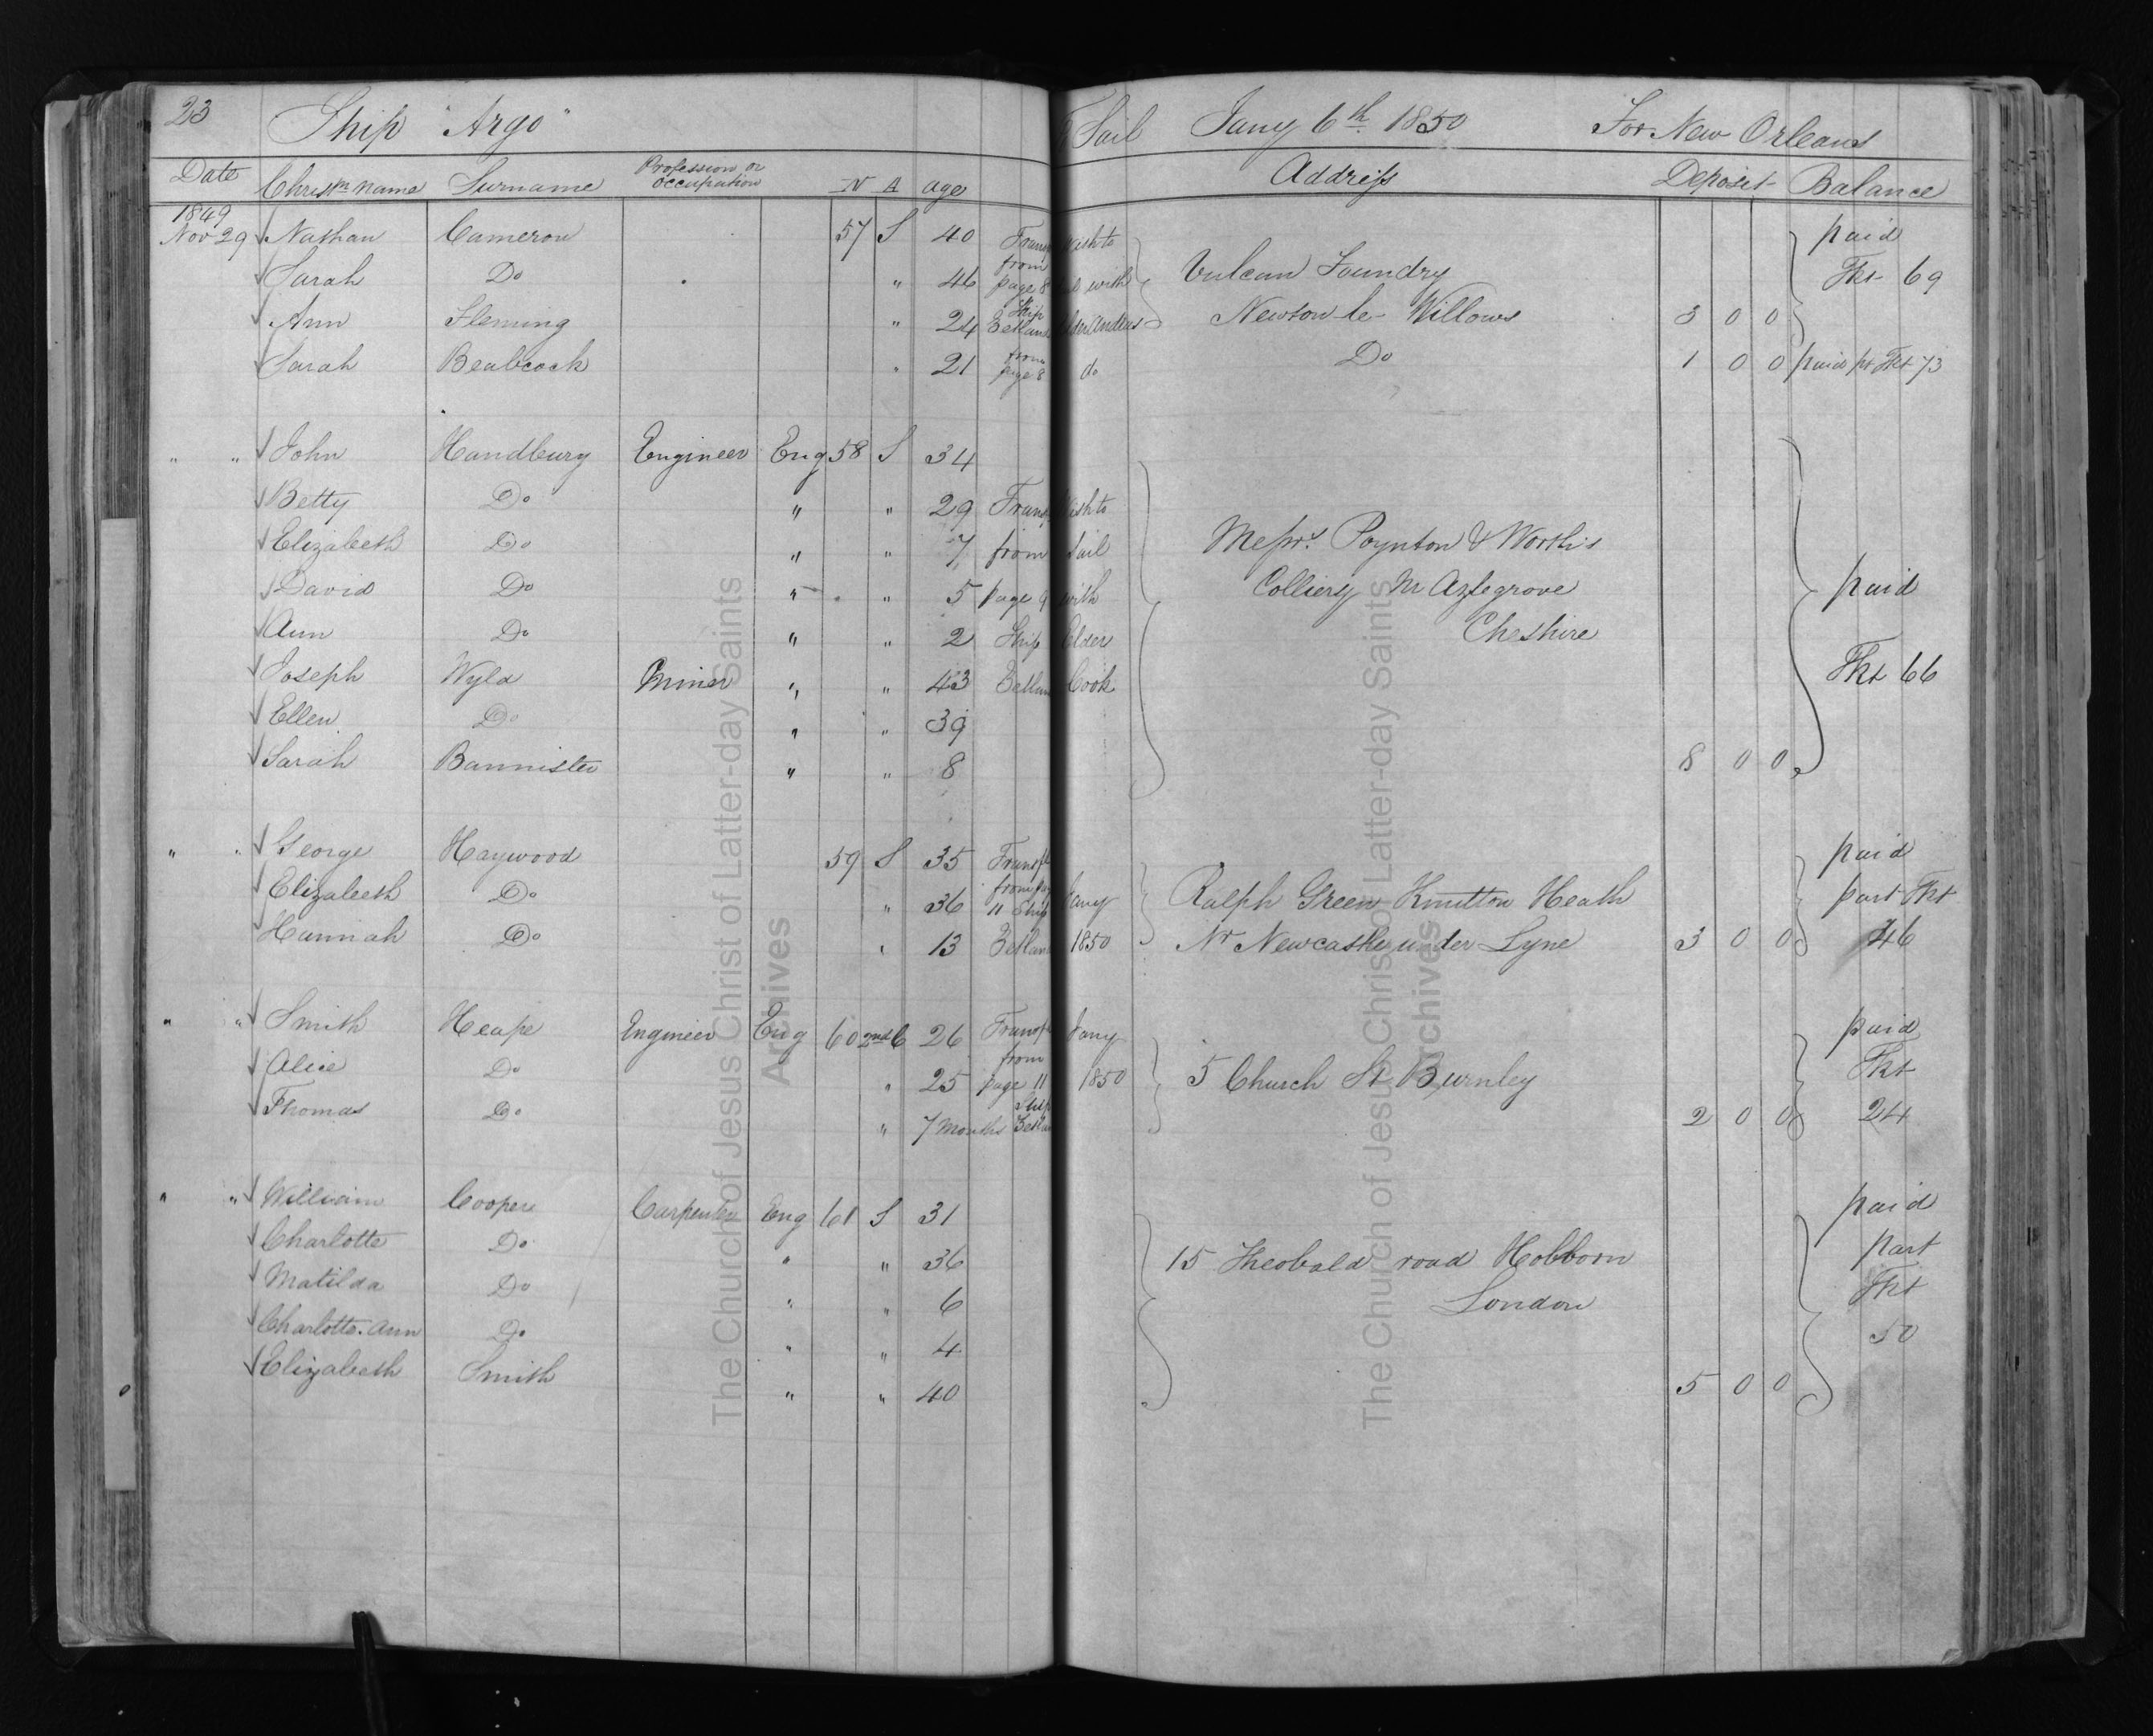 23 Ship "Argo" Sail Jany 6th 1850 For New Orleans
Date Christn name Surname Profession or occupation N A age Address Deposit Balance
1849
Nov 29 Nathan Cameron 57 S 40 Transf wish to paid
Sarah Do " 46 from page 8 with Vulcan Foundry Tkt 69
Ann Fleming " 24 Ship Zetland Newton le Willows 3 0 0
Sarah " 21 from page 8 do Do 1 0 0 paid pr Tkt 73
" " John Handbury Engineer Eng 58 S 34
Betty Do " " 29 Transf wish to
Elizabeth Do " " 7 from sail Messrs. Poynton & Worth's
David Do " " 5 page 9 with Colliery Nr Cheshire paid
Ann Do " " 2 Ship Elder
Joseph Wyld Miner " " 43 Zetland Cook Tkt 66
Ellen Do " " 39
Sarah Bannister " " 8 8 0 0
" " George Haywood 59 S 35 Transf paid
Elizabeth Do " 36 from pag 11 Ship Jany Ralph Green Knutton Heath part Tkt
Hannah Do " 13 Zetland 1850 Nr Newcastle under Lyne 3 0 0 46
" " Smith Heape Engineer Eng 60 2nd C 26 Transf Jany paid
Alice Do " 25 from page 11 1850 5 Church St Burnley Tkt
Thomas Do " 7 months Ship Zetland 2 0 0 24
" " William Cooper Carpenter Eng 61 S 31 paid
Charlotte Do " " 36 15 Theobald road Hobborn part
Matilda Do " " 6 London Tkt
Charlotte Ann Do " " 4 50
Elizabeth Smith " " 40 5 0 0
The Church of Jesus Christ of Latter-day Saints
Archives
The Church of Jesus Christ of Latter-day Saints
Archives